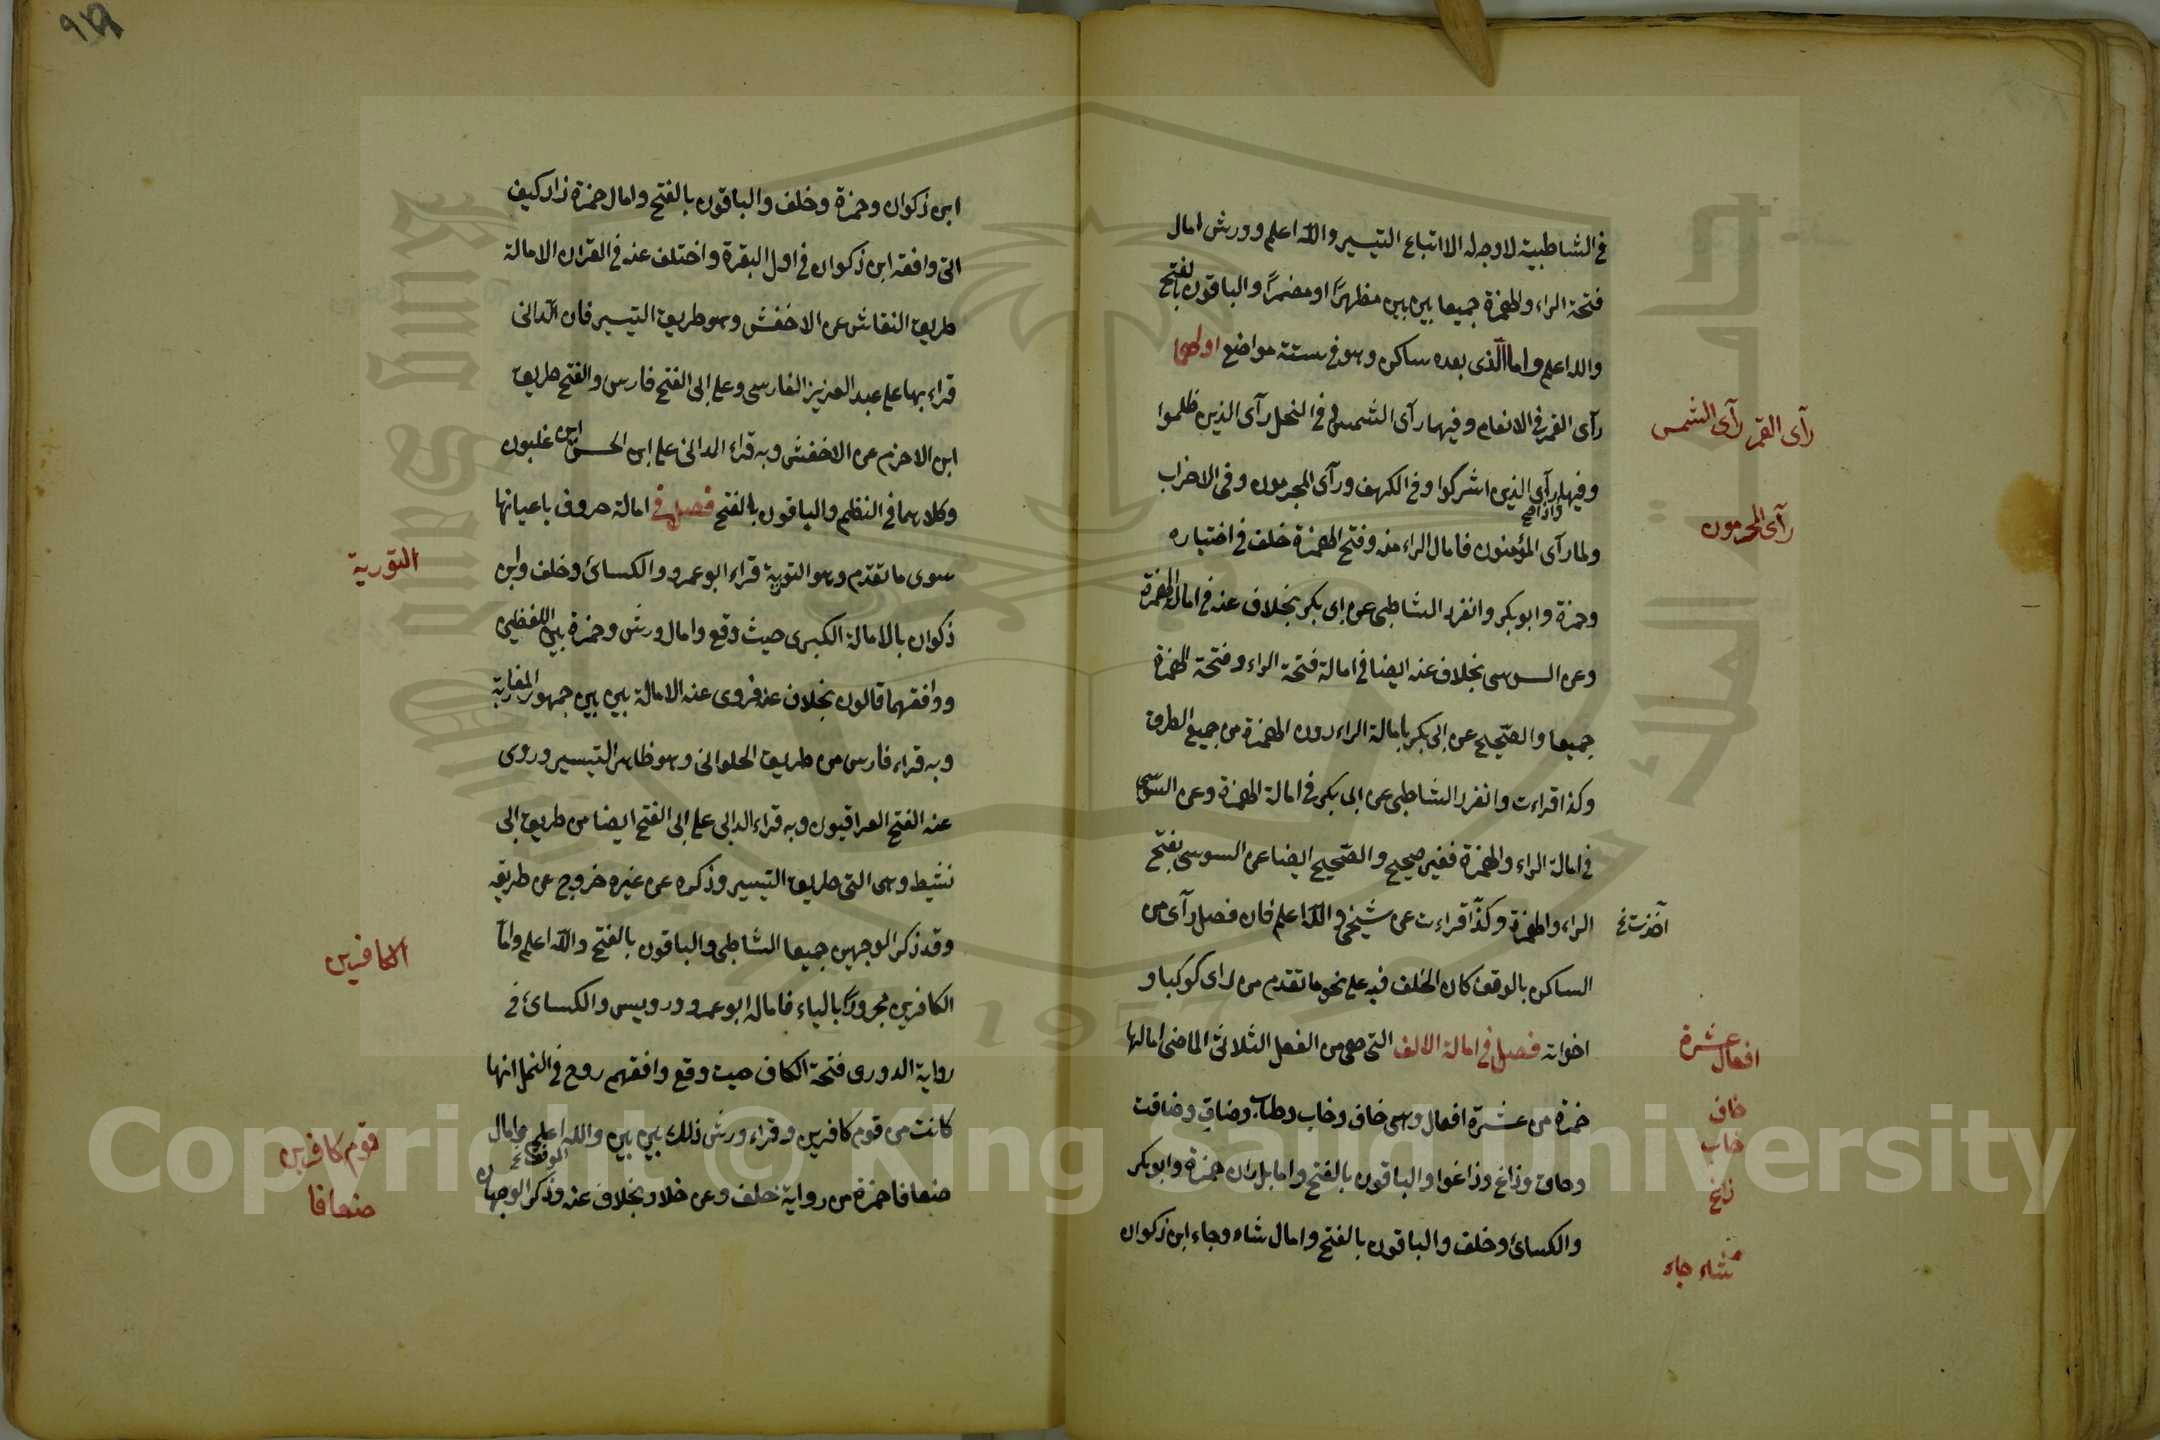 في الشاطبية لا وجه له الا اتباع التيسير والله اعلم وورش امال
فتحة الراء والهمزة جميعا بين بين مظهرًا او مضمرًا والباقون بالفتح
والله اعلم واما الذى بعده ساكن وهو في ستة مواضع اولها
رآى القمر في الانعام وفيها رآى الشمس وفي النحل رآى الذين ظلموا
وفيها رآى الذين اشركوا وفي الكهف ورآى المجرمون وفي الاحزاب
ولما رآى المؤمنون فامال الراء منه وفتح الهمزة خلف في اختياره
وحمزة وابو بكر وانفرد الشاطبى عن ابى بكر بخلاف عنه في امالة الهمزة
وعن السوسى بخلاف عنه ايضا في امالة فتحة الراء وفتحة الهمزة
جميعا والصحيح عن ابى بكر بامالة الراء دون الهمزة من جميع الطرق
وكذا قراءت وانفرد الشاطبى عن ابى بكر في امالة الهمزة وعن السوسى
في امالة الراء والهمزة فغير صحيح والصحيح ايضا عن السوسى بفتح
الراء والهمزة وكذا قراءت عن شيخى والله اعلم فان فصل رآى من
الساكن بالوقف كان الخلف فيه على نحو ما تقدم من راى كوكبا و
اخواته فصل في امالة الالف التى هى من الفعل الثلاثى الماضى امالها
حمزة من عشرة افعال وهى خاف وخاب وطاب وضاق وضاقت
وحاق وزاغ وزاغوا والباقون بالفتح واما بل ران حمزة وابو بكر
والكسائ وخلف والباقون بالفتح وامال شاء وجاء ابن ذكوان
رآى القمر رآى الشمس
رآى المجرمون
اخذت نخ
عشرة
افعال
خاف
خاب
زاغ
شاء جاء
ابن ذكوان وحمزة وخلف والباقون بالفتح وامال حمزة زاد كيف
اتى وافقه ابن ذكوان في اول البقرة واختلف عنه في القران الامالة
طريق النقاش عن الاخفش وهو طريق التيسير فان الدانى
قراء بها على عبد العزيز الفارسى وعلى ابى الفتح فارس والفتح طريق
ابن الاخرم عن الاخفش وبه قراء الدانى على ابن الحسن ابن غلبون
وكلاهما في النظم والباقون بالفتح فصل في امالة حروف باعيانها
سوى ما تقدم وهو التورية قراء ابو عمرو والكسائ وخلف وابن
ذكوان بالامالة الكبرى حيث وقع وامال ورش وحمزة بين اللفظين
ووافقهما قالون بخلاف عنه فروى عنه الامالة بين بين جمهور المغاربة
وبه قراء فارس من طريق الحلوانى وهو ظاهر التيسير وروى
عنه الفتح العراقيون وبه قراء الدانى على ابى الفتح ايضا من طريق ابى
نشيط وهى التى طريق التيسير وذكره عن غيره خروج عن طريقه
وقد ذكر الوجهين جميعا الشاطبى والباقون بالفتح والله اعلم واما
الكافرين مجرورًا بالياء فامال ابو عمرو ورويس والكسائ في
رواية الدورى فتحة الكاف حيث وقع وافقهم روح في النمل انها
كانت من قوم كافرين وقراء ورش ذلك بين بين والله اعلم وامال
ضعافا حمزة من رواية خلف وعن خلاد بخلاف عنه وذكر الوجهان
التورية
الكافرين
قوم كافرين
ضعافا
King Saud University
1957
Copyright © King Saud University